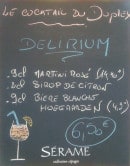 Le Cocktail du Dupleix
DELIRIUM
.9cl MARTINI ROSÉ (14,90°)
.2cl SIROP DE CITRON
.9cl BIÈRE BLANCHE
HOEGAARDEN (4,9°)
6,50€
SERAME